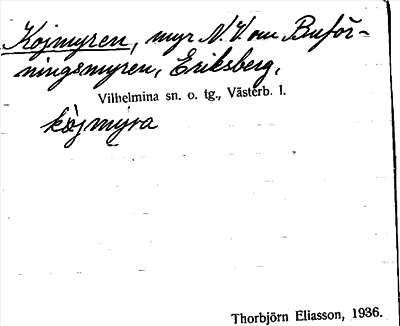 Kojmyren, myr N.V. om Buför-
ningsmyren, Eriksberg,
Vilhelmina sn. o. tg., Västerb. l.
kòjmyra
Thorbjörn Eliasson, 1936.